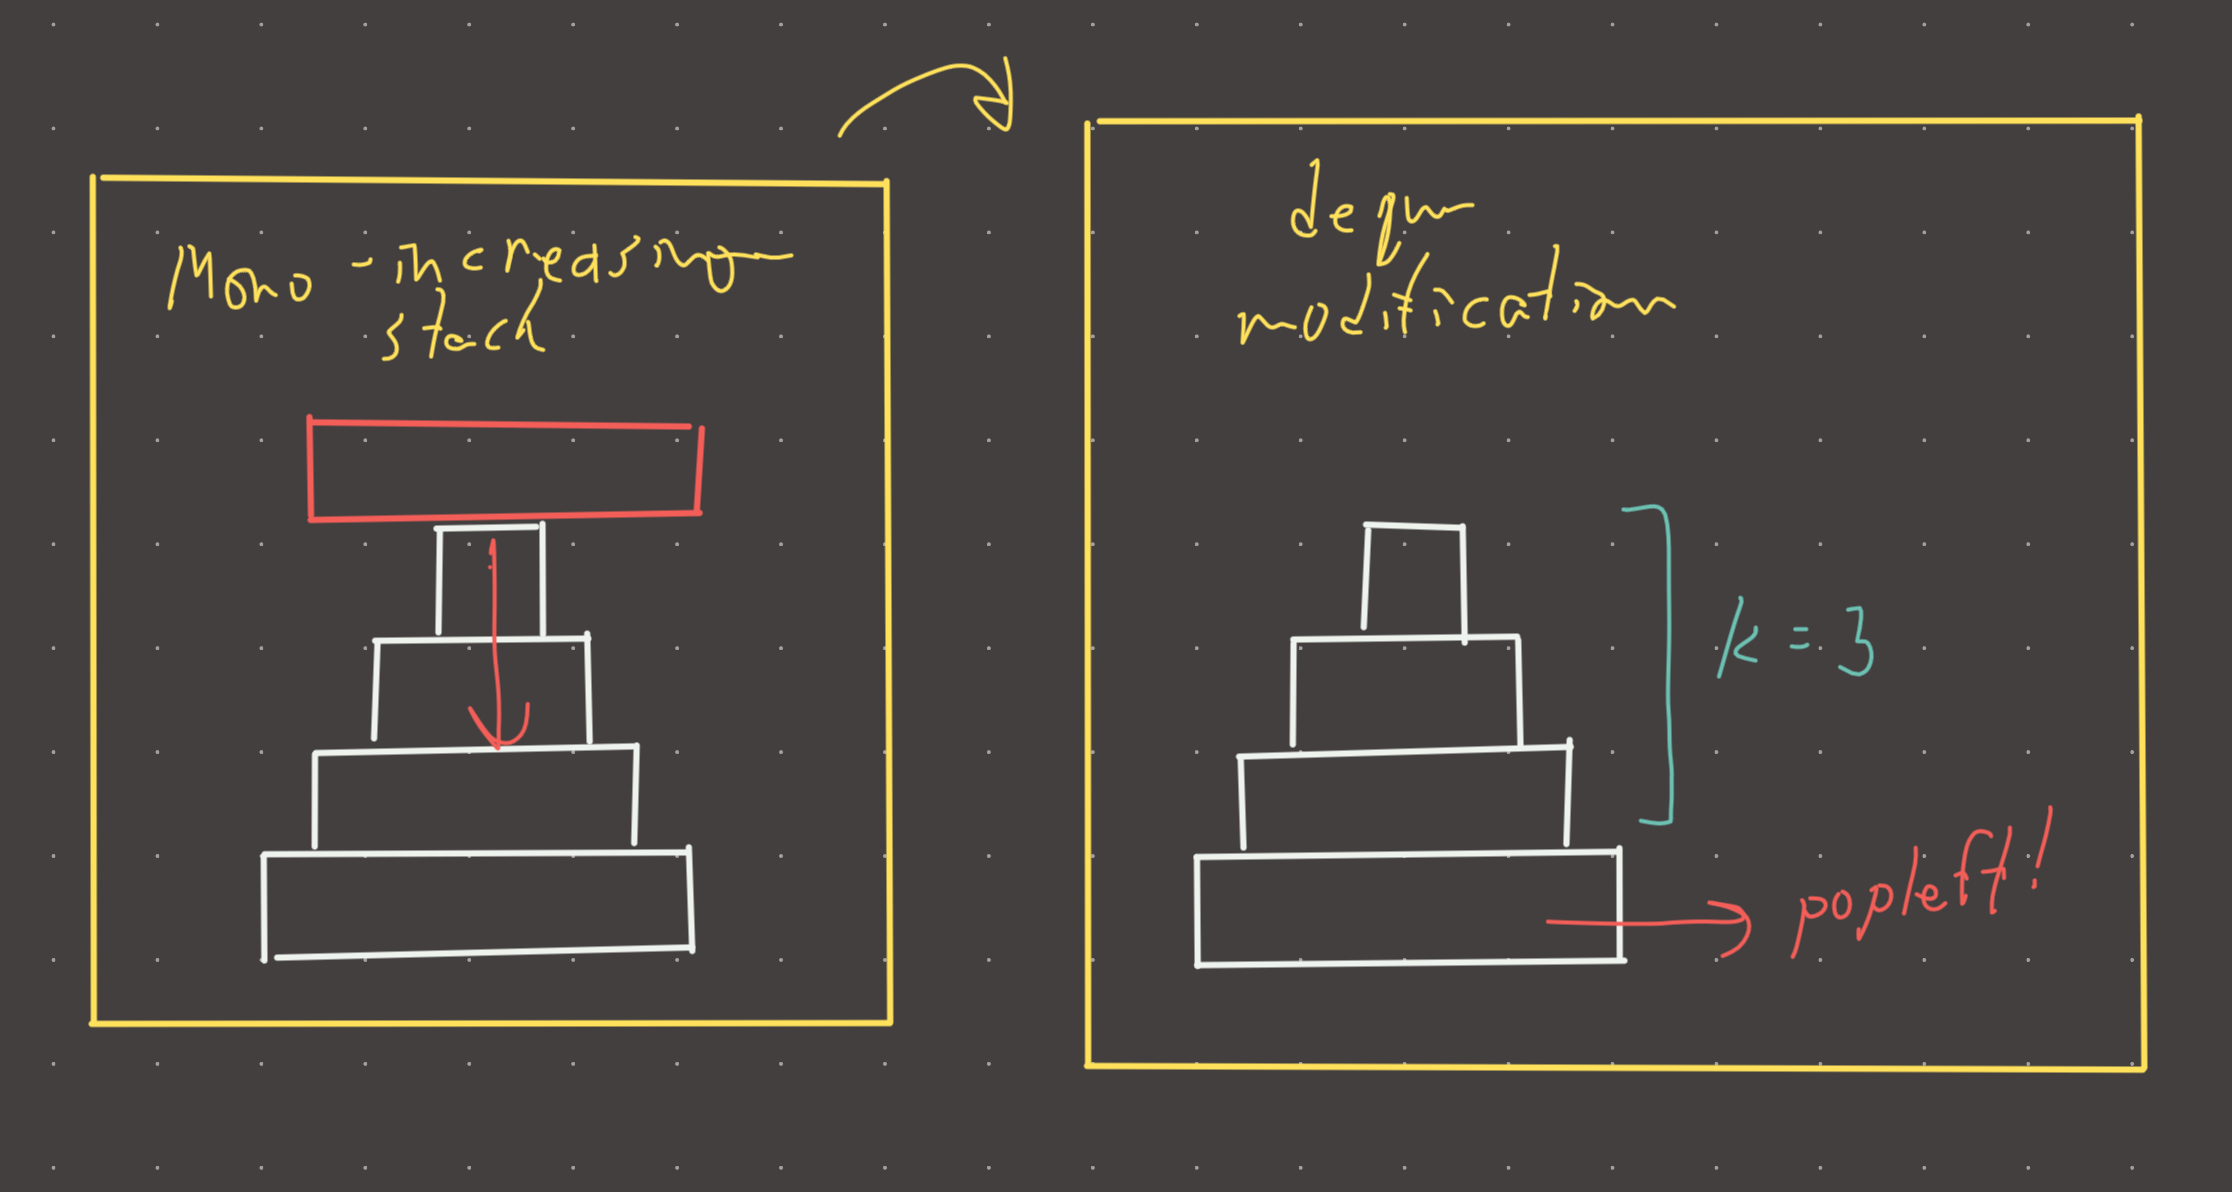 Mono-increasing
stack
deque
modification
k = 3
popleft!